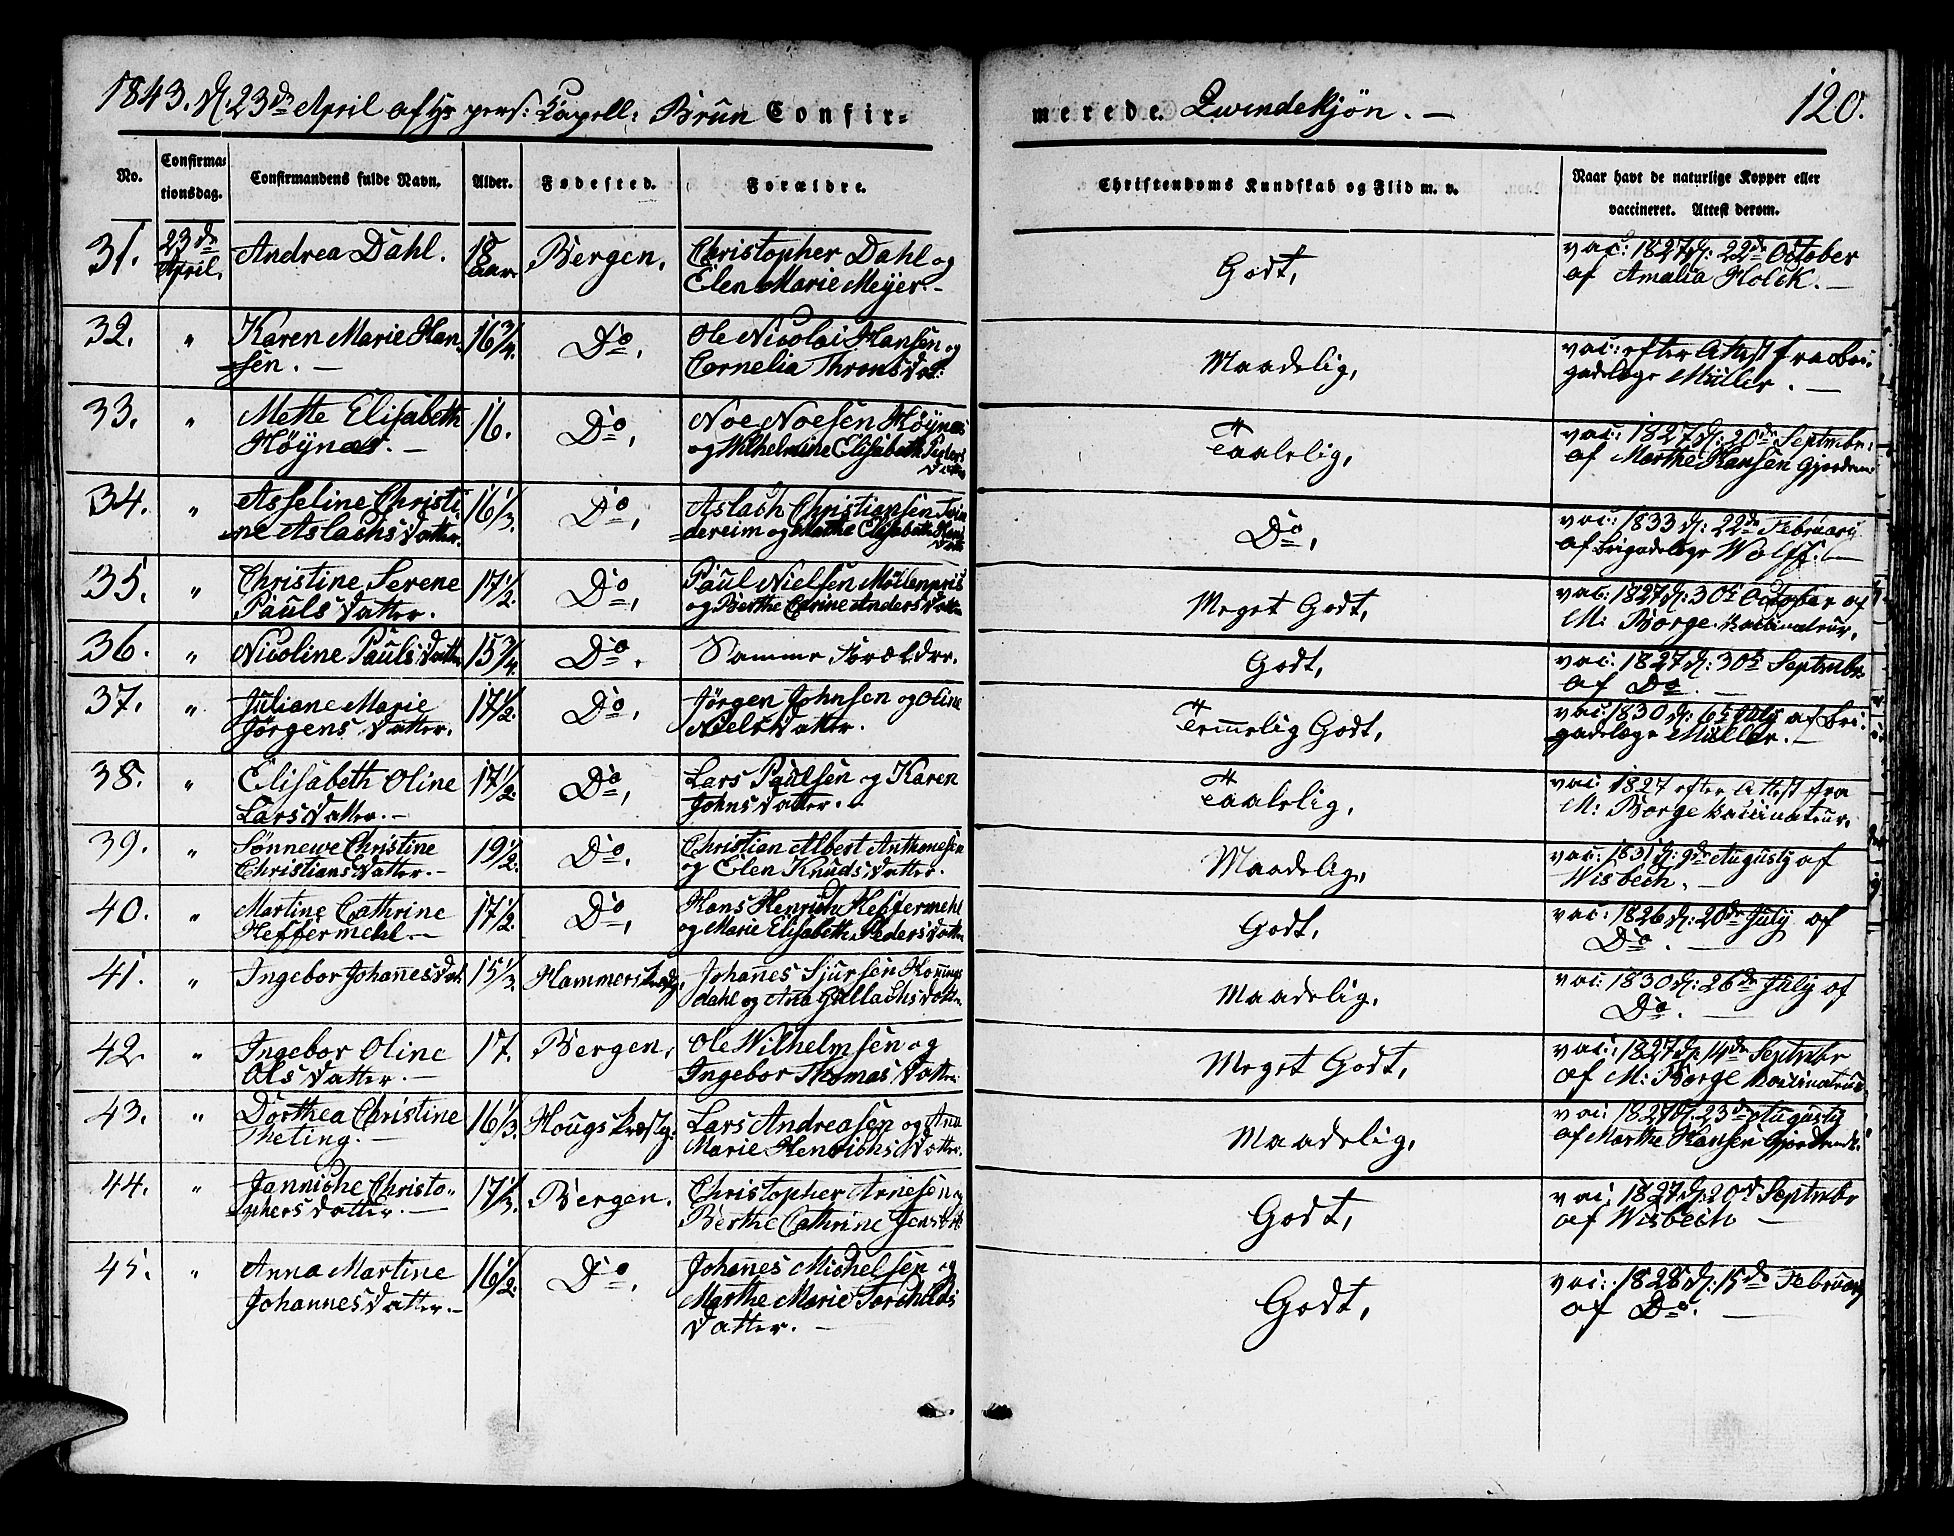 1843. d. 23de April af pers: Capell: Brun Confir-
merede. Qvindekjøn. —
120.
No. Confirmationsdag. Confirmandens fulde Navn. Alder. Fødested. Forældre.
Christendoms Kundskab og Flid m. v.
Naar havt de naturlige Kopper eller
vaccineret. Attest derom.
31. 23de April. Andrea Dahl. 18 aar Bergen, Christopher Dahl og
Elen Marie Meyer.— Godt, vac: 1827 d: 22de October
af Amalia Holck. —
32. " Karen Marie Han-
sen. — 16 3/4. Do, Ole Nicolai Hansen og
Cornelia Throns Dat: Maadelig, vac: efter Attest fra Bri-
gadelæge Müller. —
33. " Mette Elisabeth
Höynæs. — 16. Do, Noe Noesen Höynæs
og Wilhelmine Elisabeth
Datter Taalelig, vac: 1827 d: 20de Septmbr:
af Marthe Hansen Gjordem
34. " Asseline Christi-
ne Aslachs Datter. 16 1/3. Do, Aslach Christiansen
dereim og Marthe Elisabeth
Dattr Do, vac: 1833 d: 22de Februarij
af Brigadelæge Wolff. —
35. " Christine Serene
Pauls Datter. 17 1/2. Do, Paul Nielsen Möllenpris
og Berthe Catrine Anders Datter Meget Godt, vac: 1827 d: 30te October af
M: Borge Vaccinateur.
36. " Nicoline Pauls Datter 15 3/4. Do. Samme Forældre. Godt, vac: 1827 d: 30te Septmbr
af Do. —
37. " Juliane Marie
Jörgens Datter. 17 1/2. Do, Jörgen Johnsen og Oline
Niels Datter. Temmelig Godt, vac: 1830 d: 6te July af Bri-
gadelæge Müller. —
38. " Elisabeth Oline
Lars Datter.— 17 1/2. Do, Lars Paulsen og Karen
Johns Datter. Taalelig, vac: 1827 efter Attest fra
M: Borge Vaccinateur.
39. " Sönnewe Christine
Christians Datter.— 19 1/2. Do, Christian Albert Anthonesen
og Elen Knuds Datter. Maadelig, vac: 1831 d: 9de Augusty af
Wisbech. —
40. " Martine Cathrine
Heffermehl.— 17 1/2. Do, Hans Henrich Heffermehl
og Marie Elisabeth Peders Datter Godt, vac: 1826 d: 20de July af
Do. —
41. " Ingebor Johanes Dat. 15 1/3. Hammers Johanes Sjursen
dahl og Ana Gullachs Datter Maadelig, vac: 1830 d: 26de July af
Do. —
42. " Ingebor Oline
Ols Datter. — 17. Bergen, Ole Wilhelmsen og
Ingebor Thomas Datter. Meget Godt, vac: 1827 d: 14de Septmbr
af M: Borge Vaccinateur
43. " Dorthea Christine
Theting. — 16 1/3. Hougs Præstg: Lars Andreasen og Ana
Marie Henrichs Datter. Maadelig, vac: 1827 d: 23de Augusty
af Marthe Hansen
44. " Janniche Christo-
phers Datter. — 17 1/3. Bergen. Christopher Arnesen og
Berthe Cathrine Jens Dat Godt, vac: 1827 d: 20d Septmbr
af Wisbech —
45. " Anna Martine
Johannes Datter.— 16 1/2. Do, Johanes Michelsen og
Marthe Marie Torchilds
Datter. — Godt, vac: 1828 d: 15de Februarij
af Do. —